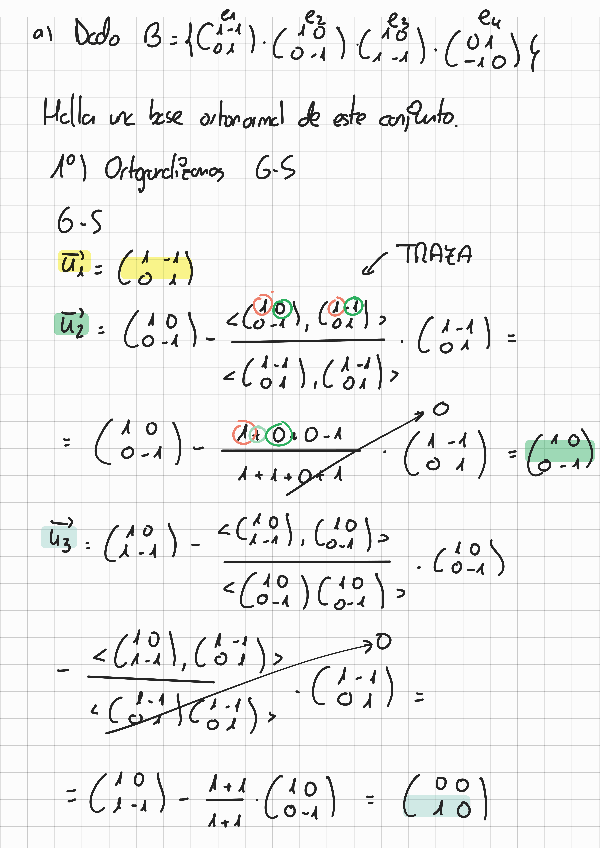 a) Dado B = {(1 -1 / 0 1) · (1 0 / 0 -1) · (1 0 / 1 -1) · (0 1 / -1 0)}
e1 e2 e3 e4
Halla una base ortonormal de este conjunto.
1º) Ortogonalizamos G-S
G-S
u1 = (1 -1 / 0 1)
TRAZA
u2 = (1 0 / 0 -1) - <(1 0 / 0 -1), (1 -1 / 0 1)> / <(1 -1 / 0 1), (1 -1 / 0 1)> · (1 -1 / 0 1) =
= (1 0 / 0 -1) - (1 + 0 + 0 - 1) / (1 + 1 + 0 + 1) → 0 · (1 -1 / 0 1) = (1 0 / 0 -1)
u3 = (1 0 / 1 -1) - <(1 0 / 1 -1), (1 0 / 0 -1)> / <(1 0 / 0 -1) (1 0 / 0 -1)> · (1 0 / 0 -1)
- <(1 0 / 1 -1), (1 -1 / 0 1)> / <(1 -1 / 0 1) (1 -1 / 0 1)> → 0 · (1 -1 / 0 1) =
= (1 0 / 1 -1) - (1+1) / (1+1) · (1 0 / 0 -1) = (0 0 / 1 0)